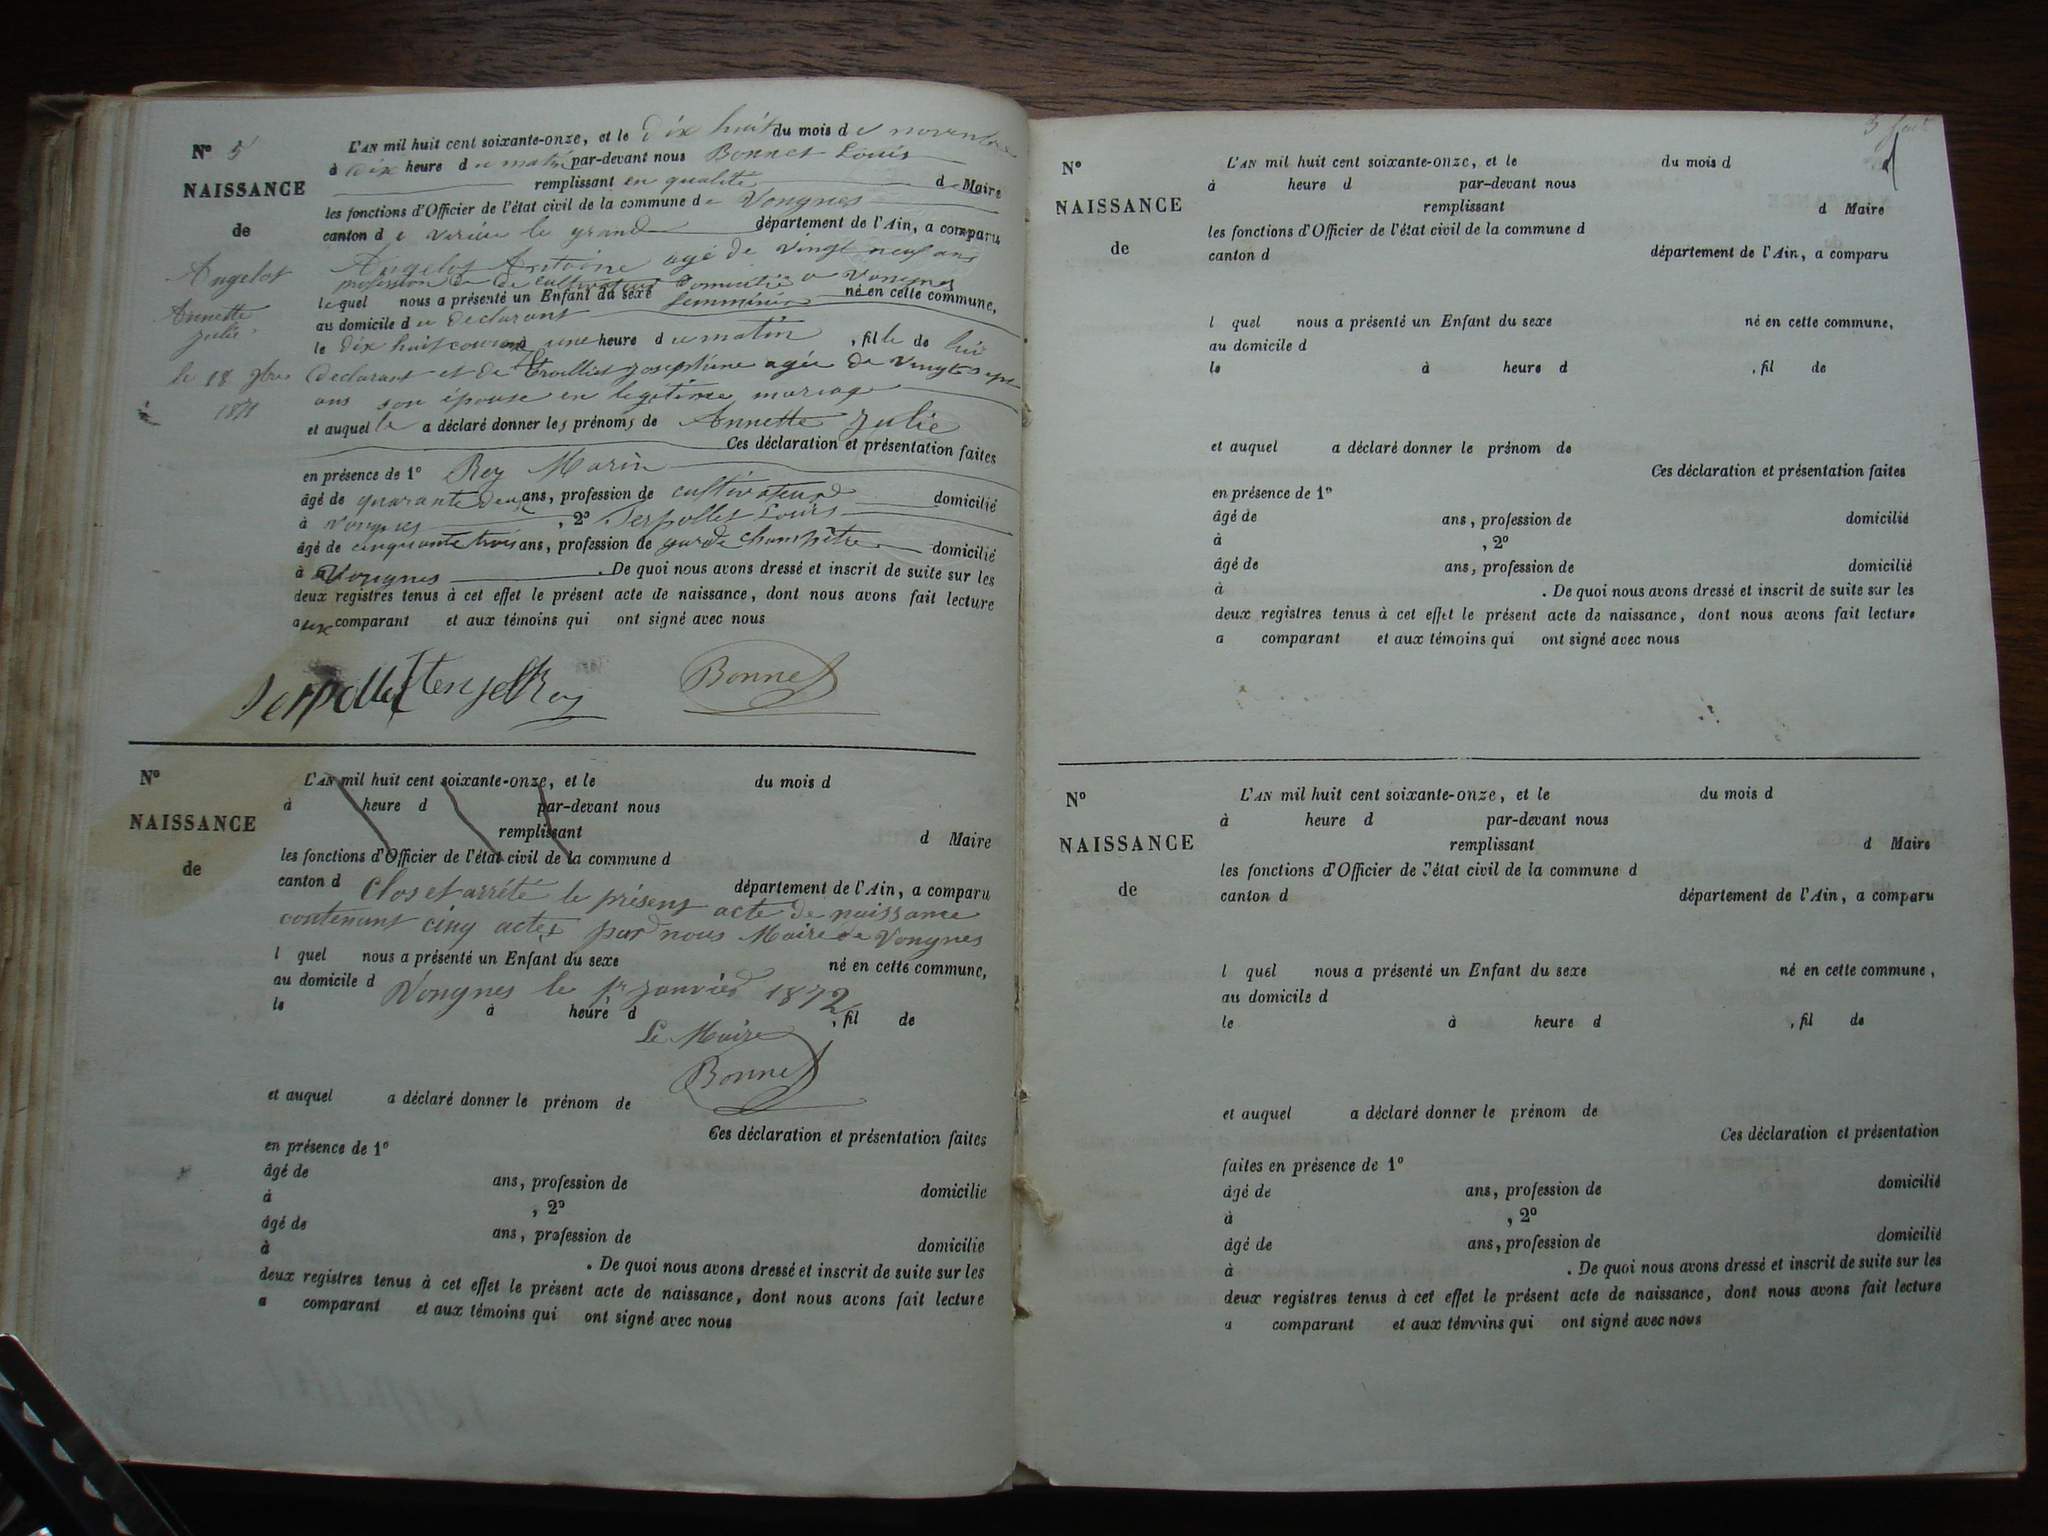 N° 5
NAISSANCE
de
Angelot
Annette
Julie
le 18 9bre
1871
L'AN mil huit cent soixante-onze, et le dix huit du mois de novembre
à dix heure du matin par-devant nous Bonnet Louis
remplissant en qualité d Maire
les fonctions d'Officier de l'état civil de la commune de Vongnes
canton de virieu le grand département de l'Ain, a comparu
Angelot Antoine agé de vingt neuf ans
profession de cultivateur domicilié a Vongnes
lequel nous a présenté un Enfant du sexe femminin né en cette commune,
au domicile du declarant
le dix huit courant à une heure du matin, fille de lui
declarant et de Josephine agée de vingt sept
ans son épouse en legitime mariage
et auquel le a déclaré donner les prénoms de Annette Julie
Ces déclaration et présentation faites
en présence de 1° Rey Marin
âgé de quarante deux ans, profession de cultivateur domicilié
à Vongnes, 2° Serpollet Louis
âgé de cinquante trois ans, profession de garde champêtre domicilié
à Vongnes. De quoi nous avons dressé et inscrit de suite sur les
deux registres tenus à cet effet le présent acte de naissance, dont nous avons fait lecture
aux comparant et aux témoins qui ont signé avec nous
Serpollet Rey Bonnet
N°
NAISSANCE
de
L'AN mil huit cent soixante-onze, et le du mois d
à heure d par-devant nous
remplissant d Maire
les fonctions d'Officier de l'état civil de la commune d
canton d département de l'Ain, a comparu
Clos et arrété le présent acte de naissance
contenant cinq actes par nous Maire de Vongnes
l quel nous a présenté un Enfant du sexe né en cette commune,
au domicile d
Vongnes le 1r janvier 1872
le à heure d , fil de
Le Maire
Bonnet
et auquel a déclaré donner le prénom de
Ces déclaration et présentation faites
en présence de 1°
âgé de ans, profession de domicilié
à , 2°
âgé de ans, profession de domicilié
à . De quoi nous avons dressé et inscrit de suite sur les
deux registres tenus à cet effet le présent acte de naissance, dont nous avons fait lecture
a comparant et aux témoins qui ont signé avec nous
N°
NAISSANCE
de
L'AN mil huit cent soixante-onze, et le du mois d
à heure d par-devant nous
remplissant d Maire
les fonctions d'Officier de l'état civil de la commune d
canton d département de l'Ain, a comparu
l quel nous a présenté un Enfant du sexe né en cette commune,
au domicile d
le à heure d , fil de
et auquel a déclaré donner le prénom de
Ces déclaration et présentation faites
en présence de 1°
âgé de ans, profession de domicilié
à , 2°
âgé de ans, profession de domicilié
à . De quoi nous avons dressé et inscrit de suite sur les
deux registres tenus à cet effet le présent acte de naissance, dont nous avons fait lecture
a comparant et aux témoins qui ont signé avec nous
N°
NAISSANCE
de
L'AN mil huit cent soixante-onze, et le du mois d
à heure d par-devant nous
remplissant d Maire
les fonctions d'Officier de l'état civil de la commune d
canton d département de l'Ain, a comparu
l quel nous a présenté un Enfant du sexe né en cette commune,
au domicile d
le à heure d , fil de
et auquel a déclaré donner le prénom de
Ces déclaration et présentation
faites en présence de 1°
âgé de ans, profession de domicilié
à , 2°
âgé de ans, profession de domicilié
à . De quoi nous avons dressé et inscrit de suite sur les
deux registres tenus à cet effet le présent acte de naissance, dont nous avons fait lecture
a comparant et aux témoins qui ont signé avec nous